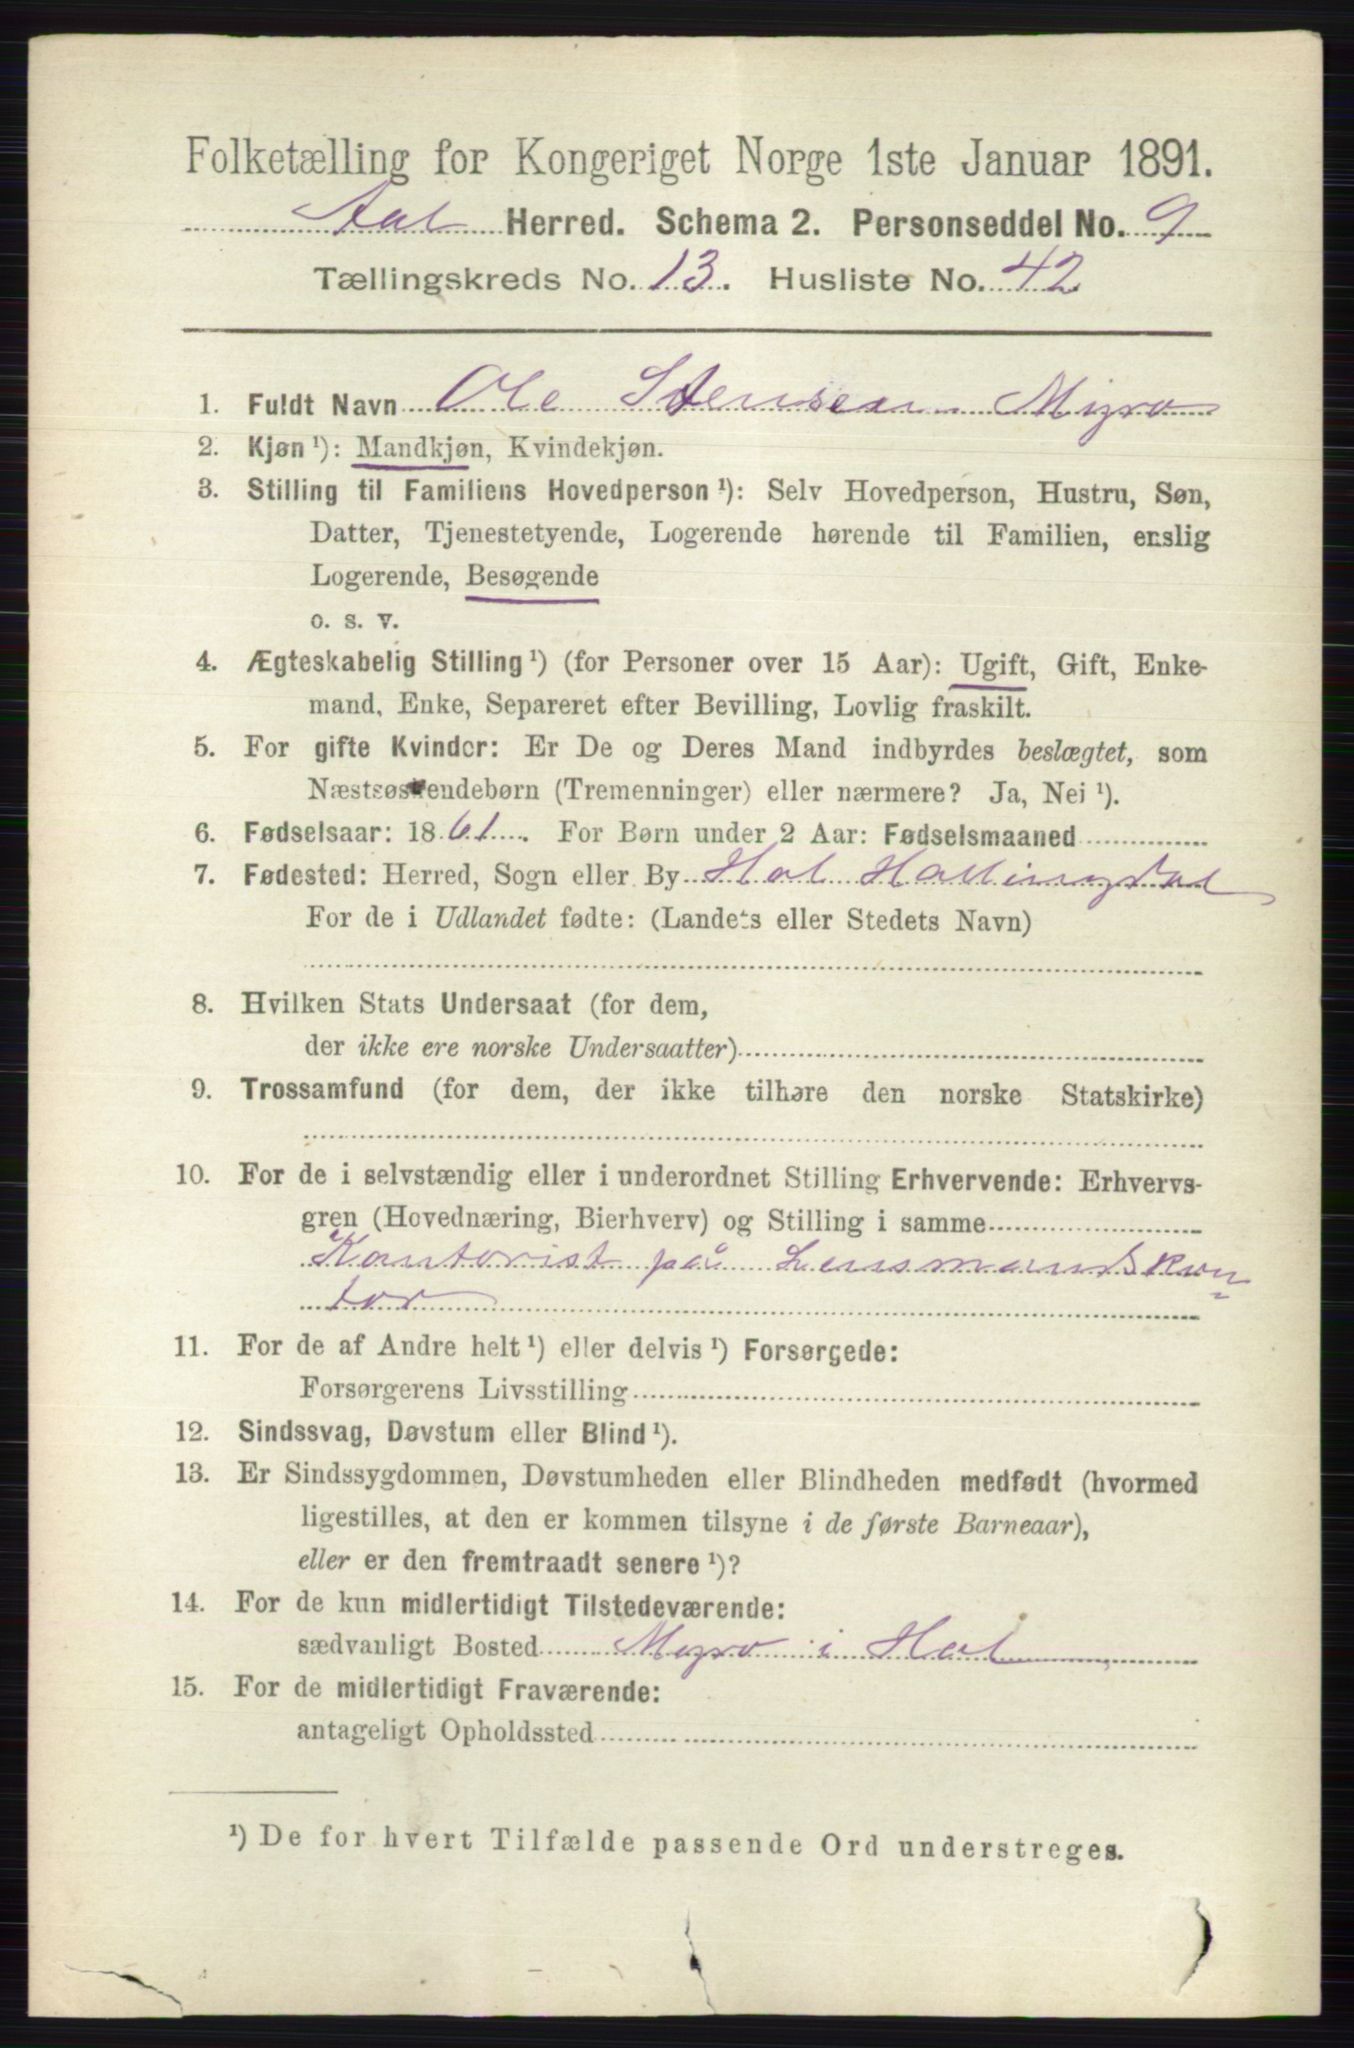 Folketælling for Kongeriget Norge 1ste Januar 1891.
Aal Herred. Schema 2. Personseddel No. 9
Tællingskreds No. 13. Husliste No. 42
1. Fuldt Navn Ole Stensen Myro
2. Kjøn ¹): Mandkjøn, Kvindekjøn.
3. Stilling til Familiens Hovedperson ¹): Selv Hovedperson, Hustru, Søn,
Datter, Tjenestetyende, Logerende hørende til Familien, enslig
Logerende, Besøgende
o. s. v.
4. Ægteskabelig Stilling ¹) (for Personer over 15 Aar): Ugift, Gift, Enke-
mand, Enke, Separeret efter Bevilling, Lovlig fraskilt.
5. For gifte Kvinder: Er De og Deres Mand indbyrdes beslægtet, som
Næstsøskendebørn (Tremenninger) eller nærmere? Ja, Nei ¹).
6. Fødselsaar: 1861. For Børn under 2 Aar: Fødselsmaaned
7. Fødested: Herred, Sogn eller By Hol Hallingdal
For de i Udlandet fødte: (Landets eller Stedets Navn)
8. Hvilken Stats Undersaat (for dem,
der ikke ere norske Undersaatter)
9. Trossamfund (for dem, der ikke tilhøre den norske Statskirke)
10. For de i selvstændig eller i underordnet Stilling Erhvervende: Erhvervs-
gren (Hovednæring, Bierhverv) og Stilling i samme
Kontorist på Lensmandskon=
tor
11. For de af Andre helt ¹) eller delvis ¹) Forsørgede:
Forsørgerens Livsstilling
12. Sindssvag, Døvstum eller Blind ¹).
13. Er Sindssygdommen, Døvstumheden eller Blindheden medfødt (hvormed
ligestilles, at den er kommen tilsyne i de første Barneaar),
eller er den fremtraadt senere ¹)?
14. For de kun midlertidigt Tilstedeværende:
sædvanligt Bosted Myro i Hol
15. For de midlertidigt Fraværende:
antageligt Opholdssted
¹) De for hvert Tilfælde passende Ord understreges.